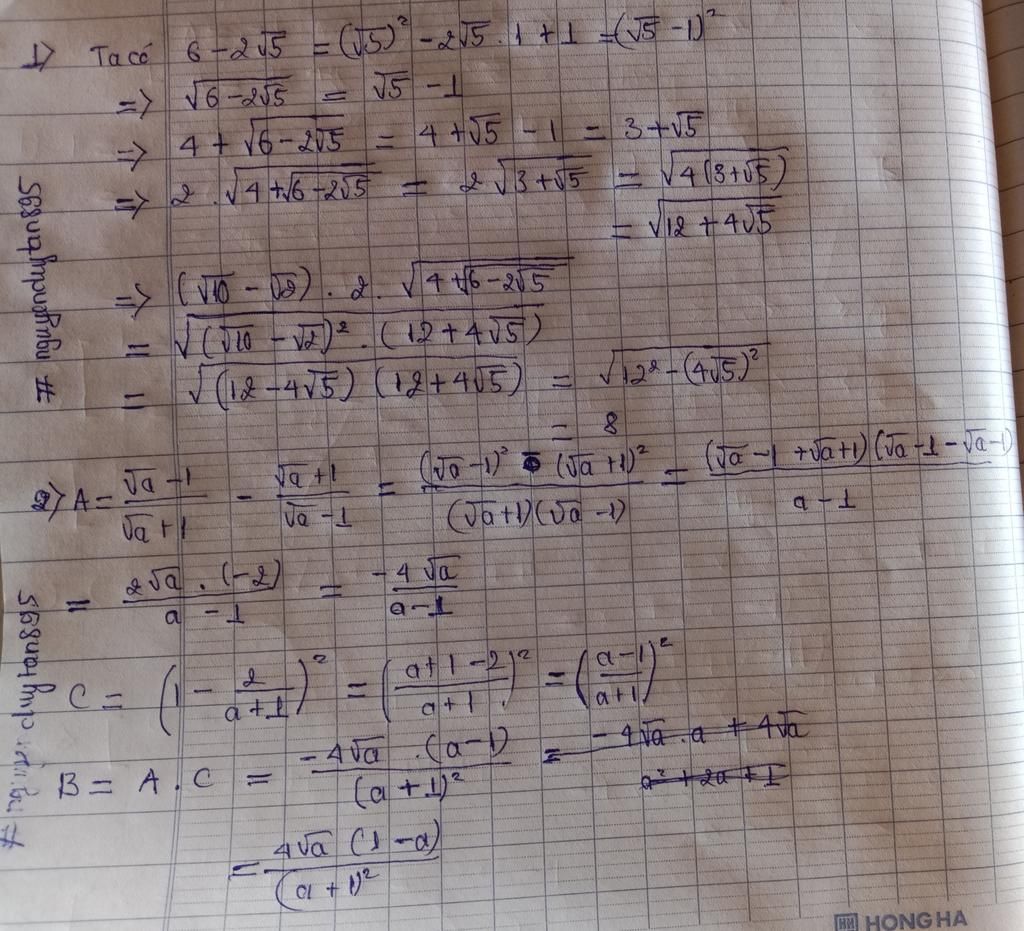 1> Ta có 6 - 2√5 = (√5)² - 2√5 . 1 + 1 = (√5 - 1)²
=> √(6 - 2√5) = √5 - 1
=> 4 + √(6 - 2√5) = 4 + √5 - 1 = 3 + √5
=> 2 . √(4 + √(6 - 2√5)) = 2√(3 + √5) = √(4(3 + √5))
= √(12 + 4√5)
=> (√10 - √2) . 2 . √(4 + √(6 - 2√5))
= √((√10 - √2)² . (12 + 4√5))
= √((12 - 4√5)(12 + 4√5)) = √(12² - (4√5)²)
= 8
2> A = (√a - 1)/(√a + 1) - (√a + 1)/(√a - 1) = ((√a - 1)² - (√a + 1)²)/((√a + 1)(√a - 1)) = ((√a - 1 + √a + 1)(√a - 1 - √a - 1))/(a - 1)
= (2√a . (-2))/(a - 1) = (-4√a)/(a - 1)
C = (1 - 2/(a + 1))² = ((a + 1 - 2)/(a + 1))² = ((a - 1)/(a + 1))²
B = A . C = (-4√a . (a - 1))/(a + 1)² = (-4√a . a + 4√a)/(a² + 2a + 1)
= (4√a (1 - a))/(a + 1)²
# nguyenduytan8695
HH HONG HA